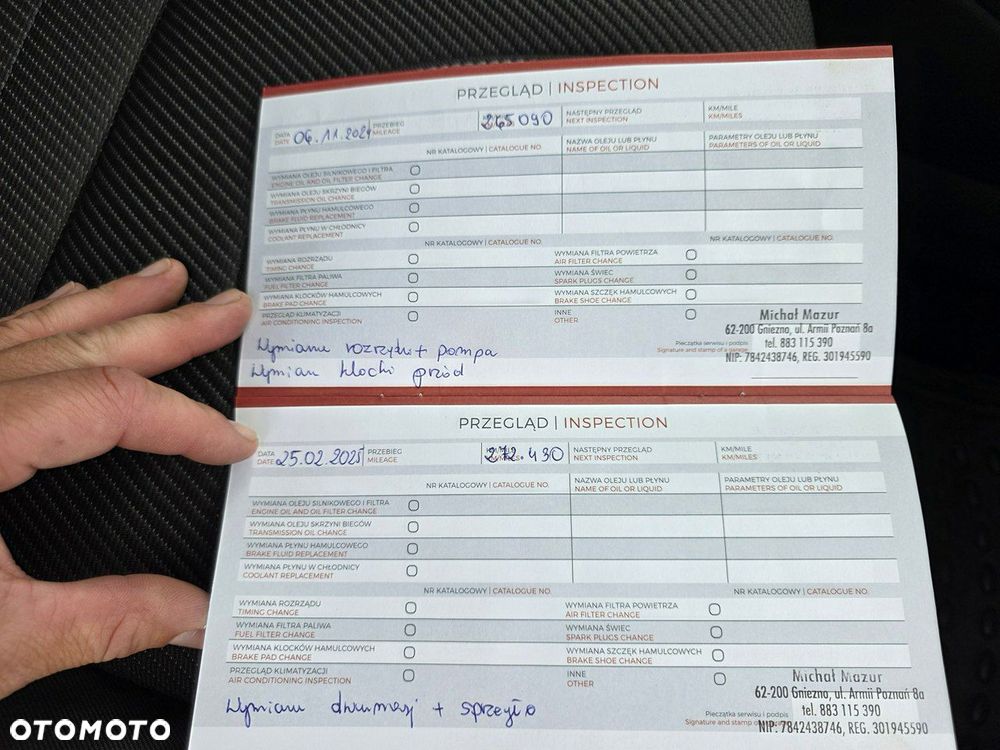 PRZEGLĄD | INSPECTION
DATA 06.11.2024 PRZEBIEG 265090 NASTĘPNY PRZEGLĄD KM/MILE
DATE MILEAGE NEXT INSPECTION KM/MILES
NR KATALOGOWY | CATALOGUE NO. NAZWA OLEJU LUB PŁYNU PARAMETRY OLEJU LUB PŁYNU
NAME OF OIL OR LIQUID PARAMETERS OF OIL OR LIQUID
WYMIANA OLEJU SILNIKOWEGO I FILTRA
ENGINE OIL AND OIL FILTER CHANGE
WYMIANA OLEJU SKRZYNI BIEGÓW
TRANSMISSION OIL CHANGE
WYMIANA PŁYNU HAMULCOWEGO
BRAKE FLUID REPLACEMENT
WYMIANA PŁYNU W CHŁODNICY
COOLANT REPLACEMENT
NR KATALOGOWY | CATALOGUE NO. NR KATALOGOWY | CATALOGUE NO.
WYMIANA ROZRZĄDU WYMIANA FILTRA POWIETRZA
TIMING CHANGE AIR FILTER CHANGE
WYMIANA FILTRA PALIWA WYMIANA ŚWIEC
FUEL FILTER CHANGE SPARK PLUGS CHANGE
WYMIANA KLOCKÓW HAMULCOWYCH WYMIANA SZCZĘK HAMULCOWYCH
BRAKE PAD CHANGE BRAKE SHOE CHANGE
PRZEGLĄD KLIMATYZACJI INNE
AIR CONDITIONING INSPECTION OTHER
Michał Mazur
62-200 Gniezno, ul. Armii Poznań 8a
Pieczątka serwisu i podpis tel. 883 115 390
Signature and stamp of a garage NIP: 7842438746, REG. 301945590
Wymiana rozrządu + pompa
Wymian klocki przód
PRZEGLĄD | INSPECTION
DATA 25.02.2025 PRZEBIEG 272.430 NASTĘPNY PRZEGLĄD KM/MILE
DATE MILEAGE NEXT INSPECTION KM/MILES
NR KATALOGOWY | CATALOGUE NO. NAZWA OLEJU LUB PŁYNU PARAMETRY OLEJU LUB PŁYNU
NAME OF OIL OR LIQUID PARAMETERS OF OIL OR LIQUID
WYMIANA OLEJU SILNIKOWEGO I FILTRA
ENGINE OIL AND OIL FILTER CHANGE
WYMIANA OLEJU SKRZYNI BIEGÓW
TRANSMISSION OIL CHANGE
WYMIANA PŁYNU HAMULCOWEGO
BRAKE FLUID REPLACEMENT
WYMIANA PŁYNU W CHŁODNICY
COOLANT REPLACEMENT
NR KATALOGOWY | CATALOGUE NO. NR KATALOGOWY | CATALOGUE NO.
WYMIANA ROZRZĄDU WYMIANA FILTRA POWIETRZA
TIMING CHANGE AIR FILTER CHANGE
WYMIANA FILTRA PALIWA WYMIANA ŚWIEC
FUEL FILTER CHANGE SPARK PLUGS CHANGE
WYMIANA KLOCKÓW HAMULCOWYCH WYMIANA SZCZĘK HAMULCOWYCH
BRAKE PAD CHANGE BRAKE SHOE CHANGE
PRZEGLĄD KLIMATYZACJI INNE
AIR CONDITIONING INSPECTION OTHER
Michał Mazur
62-200 Gniezno, ul. Armii Poznań 8a
Pieczątka serwisu i podpis tel. 883 115 390
Signature and stamp NIP: 7842438746, REG. 301945590
Wymiana dwumasy + sprzęgło
OTOMOTO